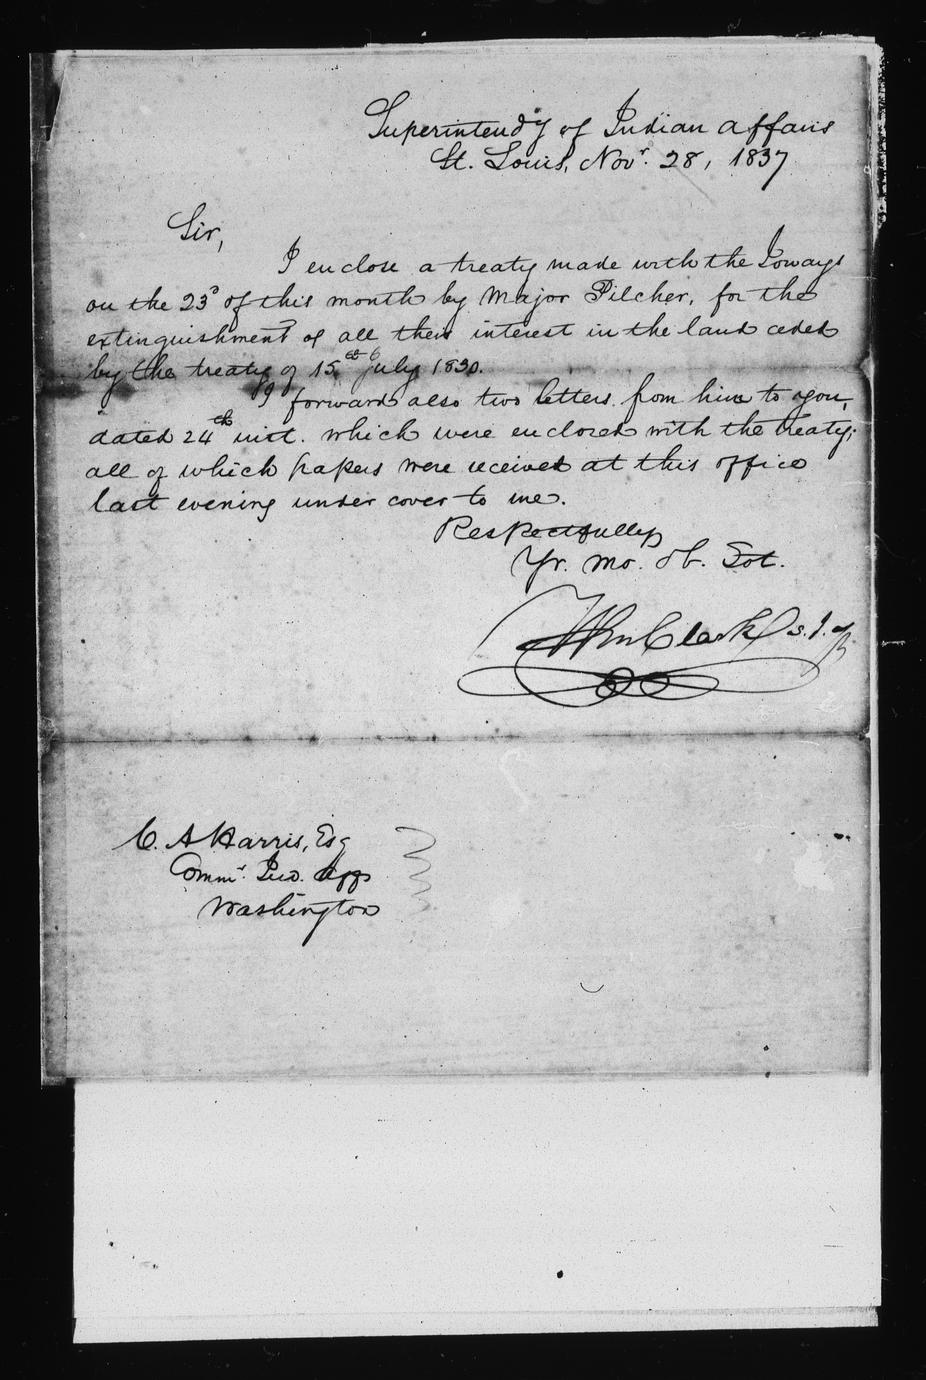 Superintendy of Indian affairs
St. Louis, Novr. 28, 1837
Sir,
I enclose a treaty made with the Ioways
on the 23d of this month by Major Pilcher, for the
extinguishment of all their interest in the land ceded
by the treaty of 15th July 1830.
I forward also two letters from him to you,
dated 24th inst. which were enclosed with the treaty;
all of which papers were received at this office
last evening under cover to me.
Respectfully
Yr. mo. ob. Sot.
Wm Clark S.I.A
C. A Harris, Esq
Commr. Ind. Affs
Washington